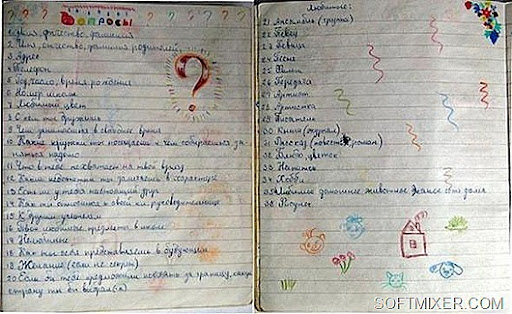 Вопросы
1 Имя, отчество, фамилия
2 Имя, отчество, фамилия родителей
3 Адрес
4 Телефон
5 Число, время рождения
6 Номер школы
7 Любимый цвет
8 С кем ты дружишь
9 Чем занимаешься в свободное время
10 Какие кружки ты посещаешь и чем собираешься за-
няться
11 Что в тебе на твой взгляд
12 Какие недостатки ты замечаешь в характере
13 Есть ли у тебя настоящий друг
14 Как ты относишься к своей кл. руководительнице
15 К другим учителям
16 Твои любимые предметы в школе
17 Нелюбимые
18 Как ты себя представляешь в будущем
19 Желание (если не секрет)
20 Если бы тебе предложили поехать за границу, какую
страну ты бы выбрал(а)
Любимые:
21 Ансамбль (группа)
22 Певец
23 Певица
24 Песня
25 Фильм
26 Передача
27 Артист
28 Артистка
29 Писатель
30 Книга (журнал)
31 Рассказ (повесть, роман)
32 Блюдо, цветок
33 Напиток
34 Хобби
35 Любимое домашнее животное
36 Рисунок
SOFTMIXER.COM